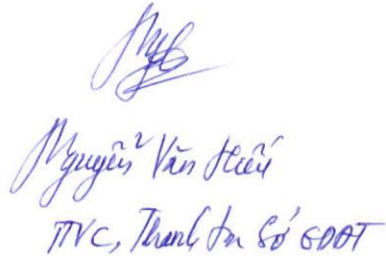 Nguyễn Văn Hiếu
TTVC, Thanh tra Sở GDĐT